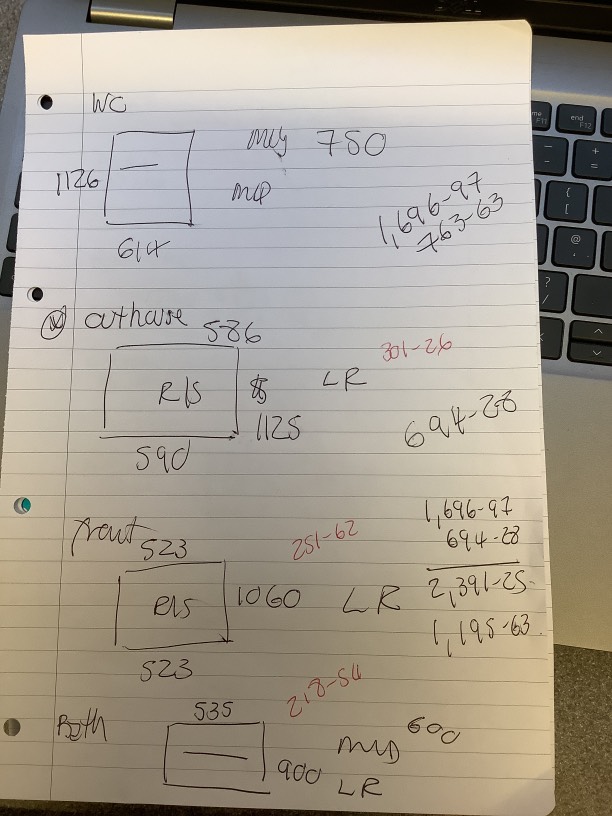 WC
780
1126
614
1,696-97
763-63
586
R/S
LR
301-26
1125
590
694-28
Front
523
251-62
1,696-97
694-28
R/S
1060
LR
2,391-25
1,195-63
523
218-54
535
Bath
600
900
LR